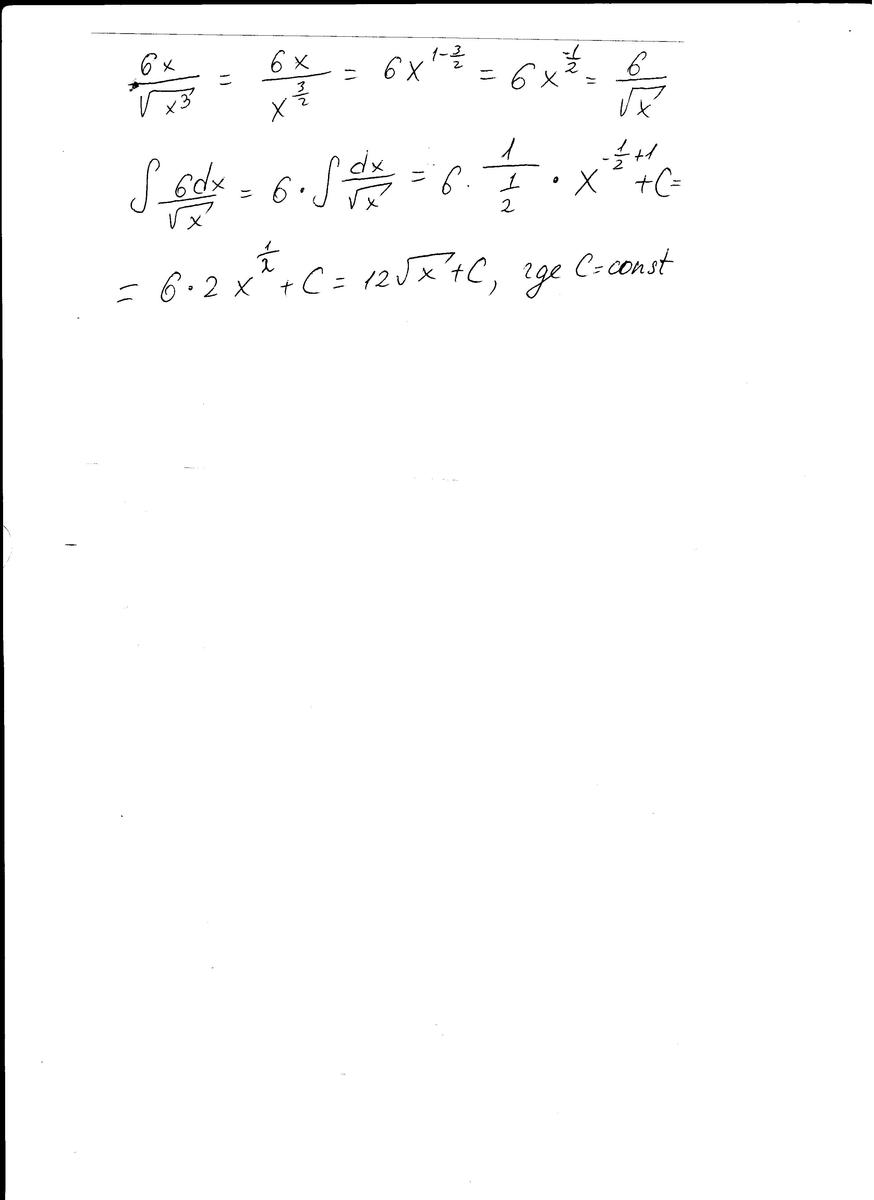 6x/√x³ = 6x/x^(3/2) = 6x^(1-3/2) = 6x^(-1/2) = 6/√x
∫ 6dx/√x = 6·∫ dx/√x = 6· 1/(1/2) · x^(-1/2+1) + C =
= 6·2 x^(1/2) + C = 12√x + C, где C=const